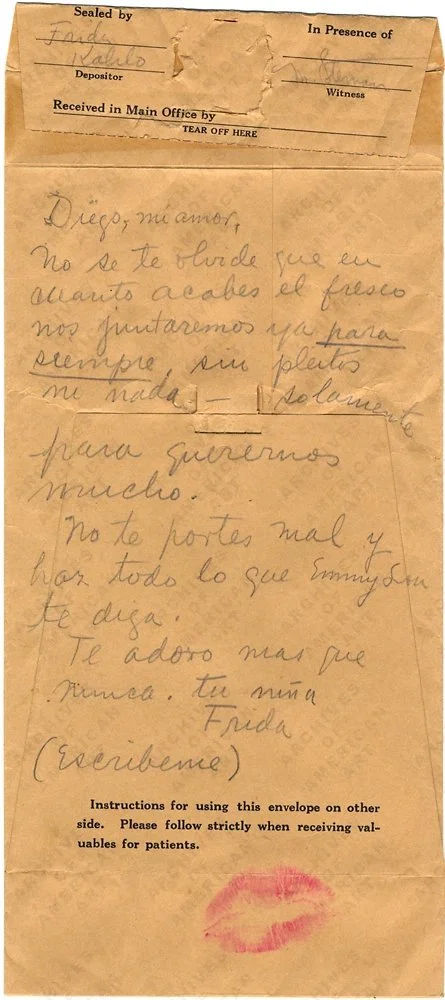 Sealed by
In Presence of
Frida
Kahlo
Depositor
Witness
Received in Main Office by
TEAR OFF HERE
Diego, mi amor,
No se te olvide que en
cuanto acabes el fresco
nos juntaremos ya para
siempre, sin pleitos
ni nada. — solamente
para querernos
mucho.
No te portes mal y
haz todo lo que Emmy Lou
te diga.
Te adoro mas que
nunca. tu niña
Frida
(Escribeme)
Instructions for using this envelope on other
side. Please follow strictly when receiving val-
uables for patients.